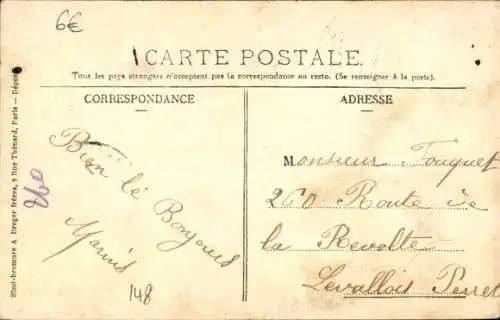 6€
CARTE POSTALE.
Tous les pays étrangers n'acceptent pas la correspondance au recto. (Se renseigner à la poste).
CORRESPONDANCE
ADRESSE
Bien le Bonjours
Marius
148
260
Monsieur Fouquet
260 Route de
la Revolte
Levallois Perret
Simi-bromure A Breger Frères, 9 Rue Thénard, Paris — Déposé